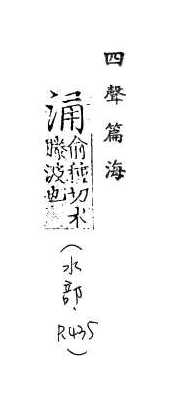 四聲篇海
涌
俞種切水
騰波也
(水部.
R435)